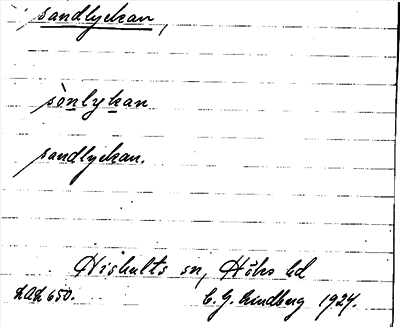 sandlyckan,
sònlykan
sandlyckan.
Hishults sn, Höks hd
LAL 650. C. G. Lindberg 1927.